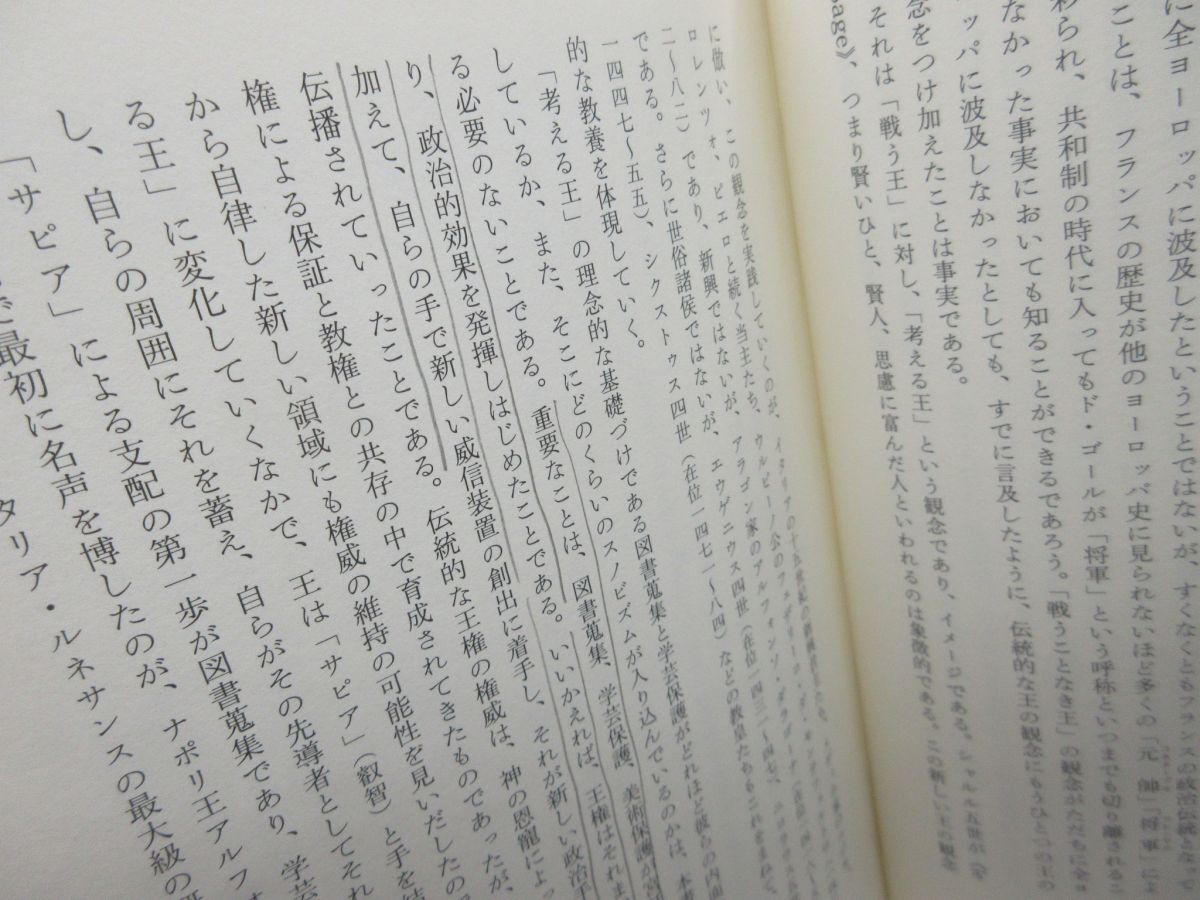 に全ヨーロッパに波及したということではないが、すくなくともフランスの政治伝統となって
ことは、フランスの歴史が他のヨーロッパ史に見られないほど多くの「元帥」「将軍」によ
められ、共和制の時代に入ってもド・ゴールが「将軍」という呼称といつまでも切り離されるこ
なかった事実においても知ることができるであろう。「戦うことなき王」の観念がただちに全ヨ
ッパに波及しなかったとしても、すでに言及したように、伝統的な王の観念にもうひとつの王の
念をつけ加えたことは事実である。
それは「戦う王」に対し、「考える王」という観念であり、イメージである。シャルル五世が
age》、つまり賢いひと、賢人、思慮に富んだ人といわれるのは象徴的である。この新しい王の観念
に倣い、この観念を実践していくのが、イタリアの十五世紀の
ロレンツォ、ピエロと続く当主たち、ウルビーノ公のフェデリーゴ・ダ・
二〜八二）であり、新興ではないが、アラゴン家のアルフォンソ・ダラゴーナ
である。さらに世俗諸侯ではないが、エウゲニウス四世（在位一四三一〜四七）、
一四四七〜五五）、シクストゥス四世（在位一四七一〜八四）などの教皇たちもこれをまねて、
的な教養を体現していく。
「考える王」の理念的な基礎づけである図書蒐集と学芸保護がどれほど彼らの内面
しているか、また、そこにどのくらいのスノビズムが入り込んでいるのかは、本
る必要のないことである。重要なことは、図書蒐集、学芸保護、美術保護が
り、政治的効果を発揮しはじめたことである。いいかえれば、王権はそれま
加えて、自らの手で新しい威信装置の創出に着手し、それが新しい政治手
伝播されていったことである。伝統的な王権の権威は、神の恩寵によっ
権による保証と教権との共存の中で育成されてきたものであったが、
から自律した新しい領域にも権威の維持の可能性を見いだしたの
る王」に変化していくなかで、王は「サピア」（叡智）と手を結
し、自らの周囲にそれを蓄え、自らがその先導者としてそれ
「サピア」による支配の第一歩が図書蒐集であり、学芸
で最初に名声を博したのが、ナポリ王アルフ
タリア・ルネサンスの最大級の